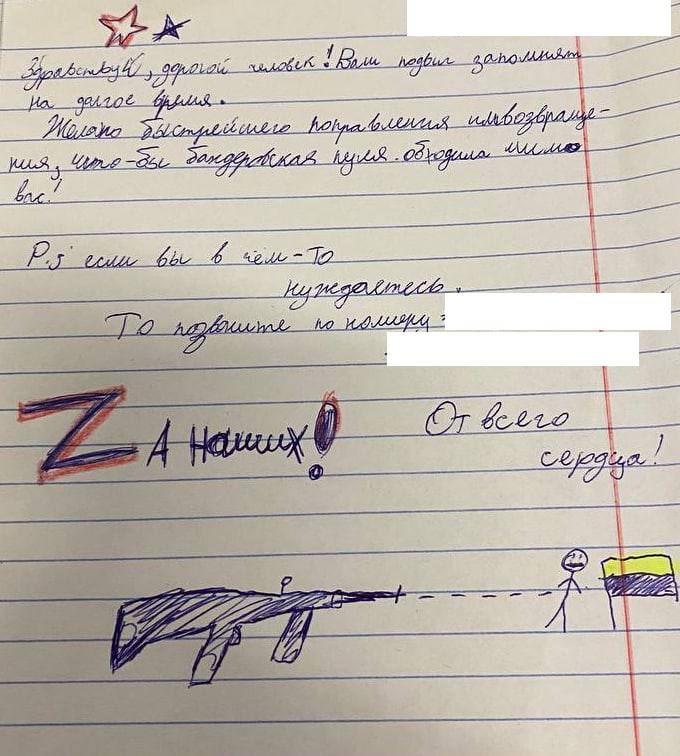 Здравствуй, дорогой человек! Ваш подвиг запомнят
на долгое время.
Желаю быстрейшего поправления или возвраще-
ния, что-бы бандеровская пуля обходила мимо
вас!
P.s если вы в чём-то
нуждаетесь.
То позвоните по номеру:
Zа наших!
От всего
сердца!